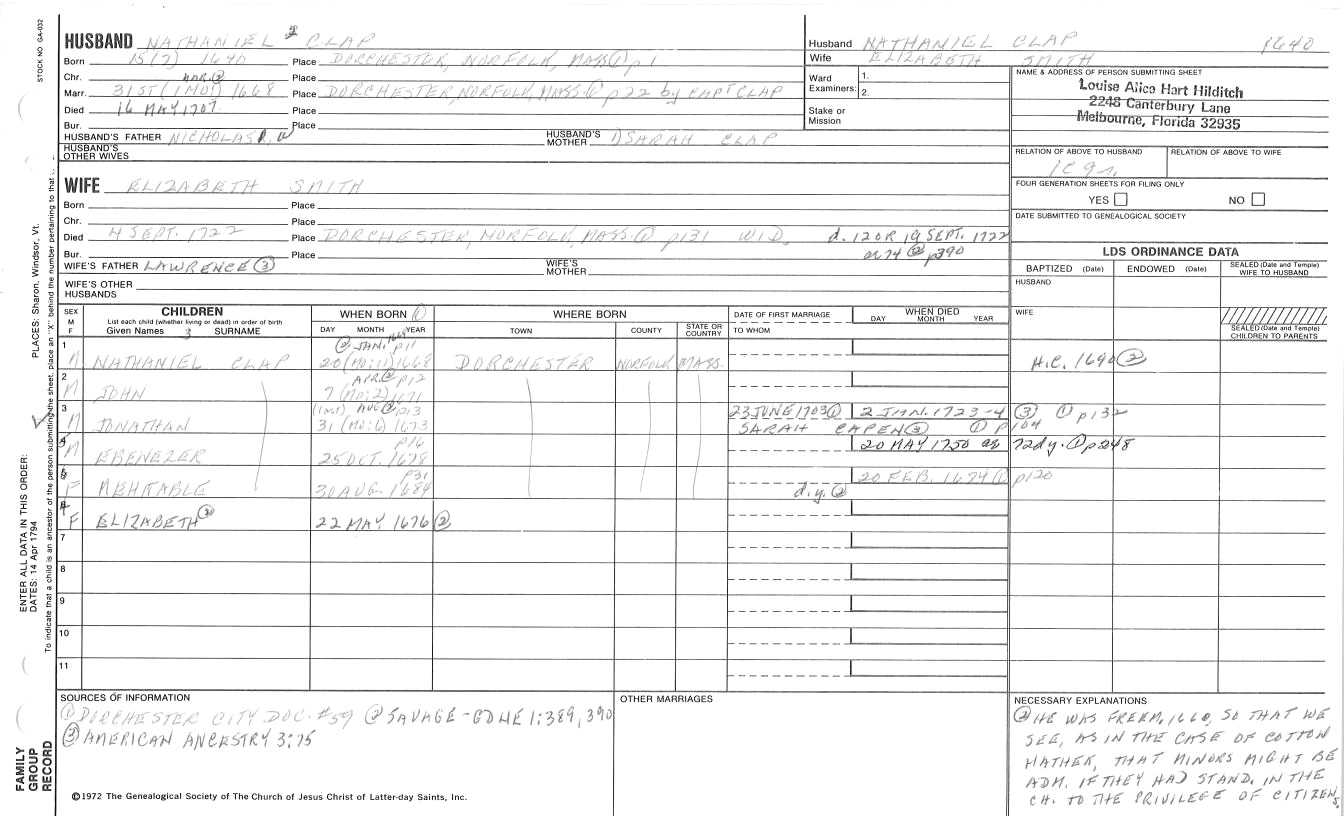 STOCK NO GA-032
HUSBAND NATHANIEL 2 CLAP
Born 15(7) 1640 Place DORCHESTER, NORFOLK, MASS① p1
Chr. MAR.② Place
Marr. 31ST (1 MO:) 1668 Place DORCHESTER, NORFOLK, MASS.① p22 by CAPT CLAP
Died 16 MAY 1707 Place
Bur. Place
HUSBAND'S FATHER NICHOLAS
HUSBAND'S MOTHER SARAH CLAP
HUSBAND'S OTHER WIVES
Husband NATHANIEL CLAP 1640
Wife ELIZABETH SMITH
Ward Examiners: 1.
2.
Stake or Mission
NAME & ADDRESS OF PERSON SUBMITTING SHEET
Louise Alice Hart Hilditch
2248 Canterbury Lane
Melbourne, Florida 32935
RELATION OF ABOVE TO HUSBAND RELATION OF ABOVE TO WIFE
FOUR GENERATION SHEETS FOR FILING ONLY
YES NO
DATE SUBMITTED TO GENEALOGICAL SOCIETY
WIFE ELIZABETH SMITH
Born Place
Chr. Place
Died 4 SEPT. 1722 Place DORCHESTER, NORFOLK, MASS.① p131 WID. d. 12 OR 19 SEPT. 1722
Bur. Place ae 74 ② p390
WIFE'S FATHER LAWRENCE ③
WIFE'S MOTHER
WIFE'S OTHER HUSBANDS
LDS ORDINANCE DATA
BAPTIZED (Date) ENDOWED (Date) SEALED (Date and Temple) WIFE TO HUSBAND
HUSBAND
WIFE
SEALED (Date and Temple) CHILDREN TO PARENTS
SEX M F
CHILDREN
List each child (whether living or dead) in order of birth
Given Names SURNAME
WHEN BORN ①
DAY MONTH YEAR
WHERE BORN
TOWN COUNTY STATE OR COUNTRY
DATE OF FIRST MARRIAGE
TO WHOM
WHEN DIED
DAY MONTH YEAR
② JAN. 1668 p11
1 M NATHANIEL CLAP 20 (MO:11) 1668 DORCHESTER NORFOLK MASS. H.C. 1690 ②
APR② p12
2 M JOHN 7 (MO:2) 1671
AUG② p13
3 M JONATHAN 31 (MO:6) 1673 23 JUNE 1703① 2 JAN. 1723-4 ③ ① p132
SARAH CAPEN③ ① p104
p16
M EBENEZER 25 OCT. 1678 20 MAY 1750 ae 72dy.① p248
p31
F MEHITABLE 30 AUG. 1684 d.y.② 20 FEB. 1674① p120
F ELIZABETH② 22 MAY. 1676②
7
8
9
10
11
SOURCES OF INFORMATION
① DORCHESTER CITY DOC. #59 ② SAVAGE-GDNE 1:389, 390
③ AMERICAN ANCESTRY 3:75
OTHER MARRIAGES
NECESSARY EXPLANATIONS
② HE WAS FREEM, 1660, SO THAT WE
SEE, AS IN THE CASE OF COTTON
MATHER, THAT MINORS MIGHT BE
ADM. IF THEY HAD STAND. IN THE
CH. TO THE PRIVILEGE OF CITIZENS.
©1972 The Genealogical Society of The Church of Jesus Christ of Latter-day Saints, Inc.
FAMILY GROUP RECORD
ENTER ALL DATA IN THIS ORDER:
DATES: 14 Apr 1794
PLACES: Sharon, Windsor, Vt.
To indicate that a child is an ancestor of the person submitting the sheet, place an "X" behind the number pertaining to that